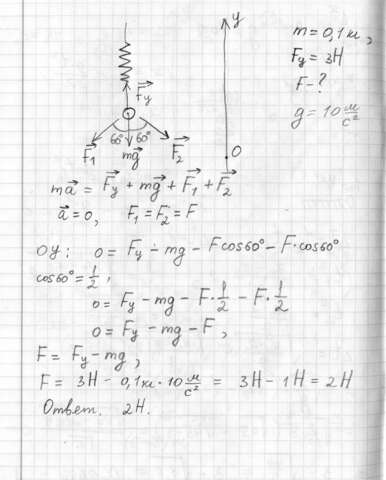 y
m = 0,1 кг,
Fy = 3H
F - ?
g = 10 м/с²
Fy
60° 60°
F₁ mg F₂
0
ma = Fy + mg + F₁ + F₂
a = 0, F₁ = F₂ = F
OY: 0 = Fy - mg - Fcos60° - F·cos60°
cos60° = 1/2,
0 = Fy - mg - F·1/2 - F·1/2
0 = Fy - mg - F,
F = Fy - mg,
F = 3H - 0,1кг·10 м/с² = 3H - 1H = 2H
Ответ. 2H.